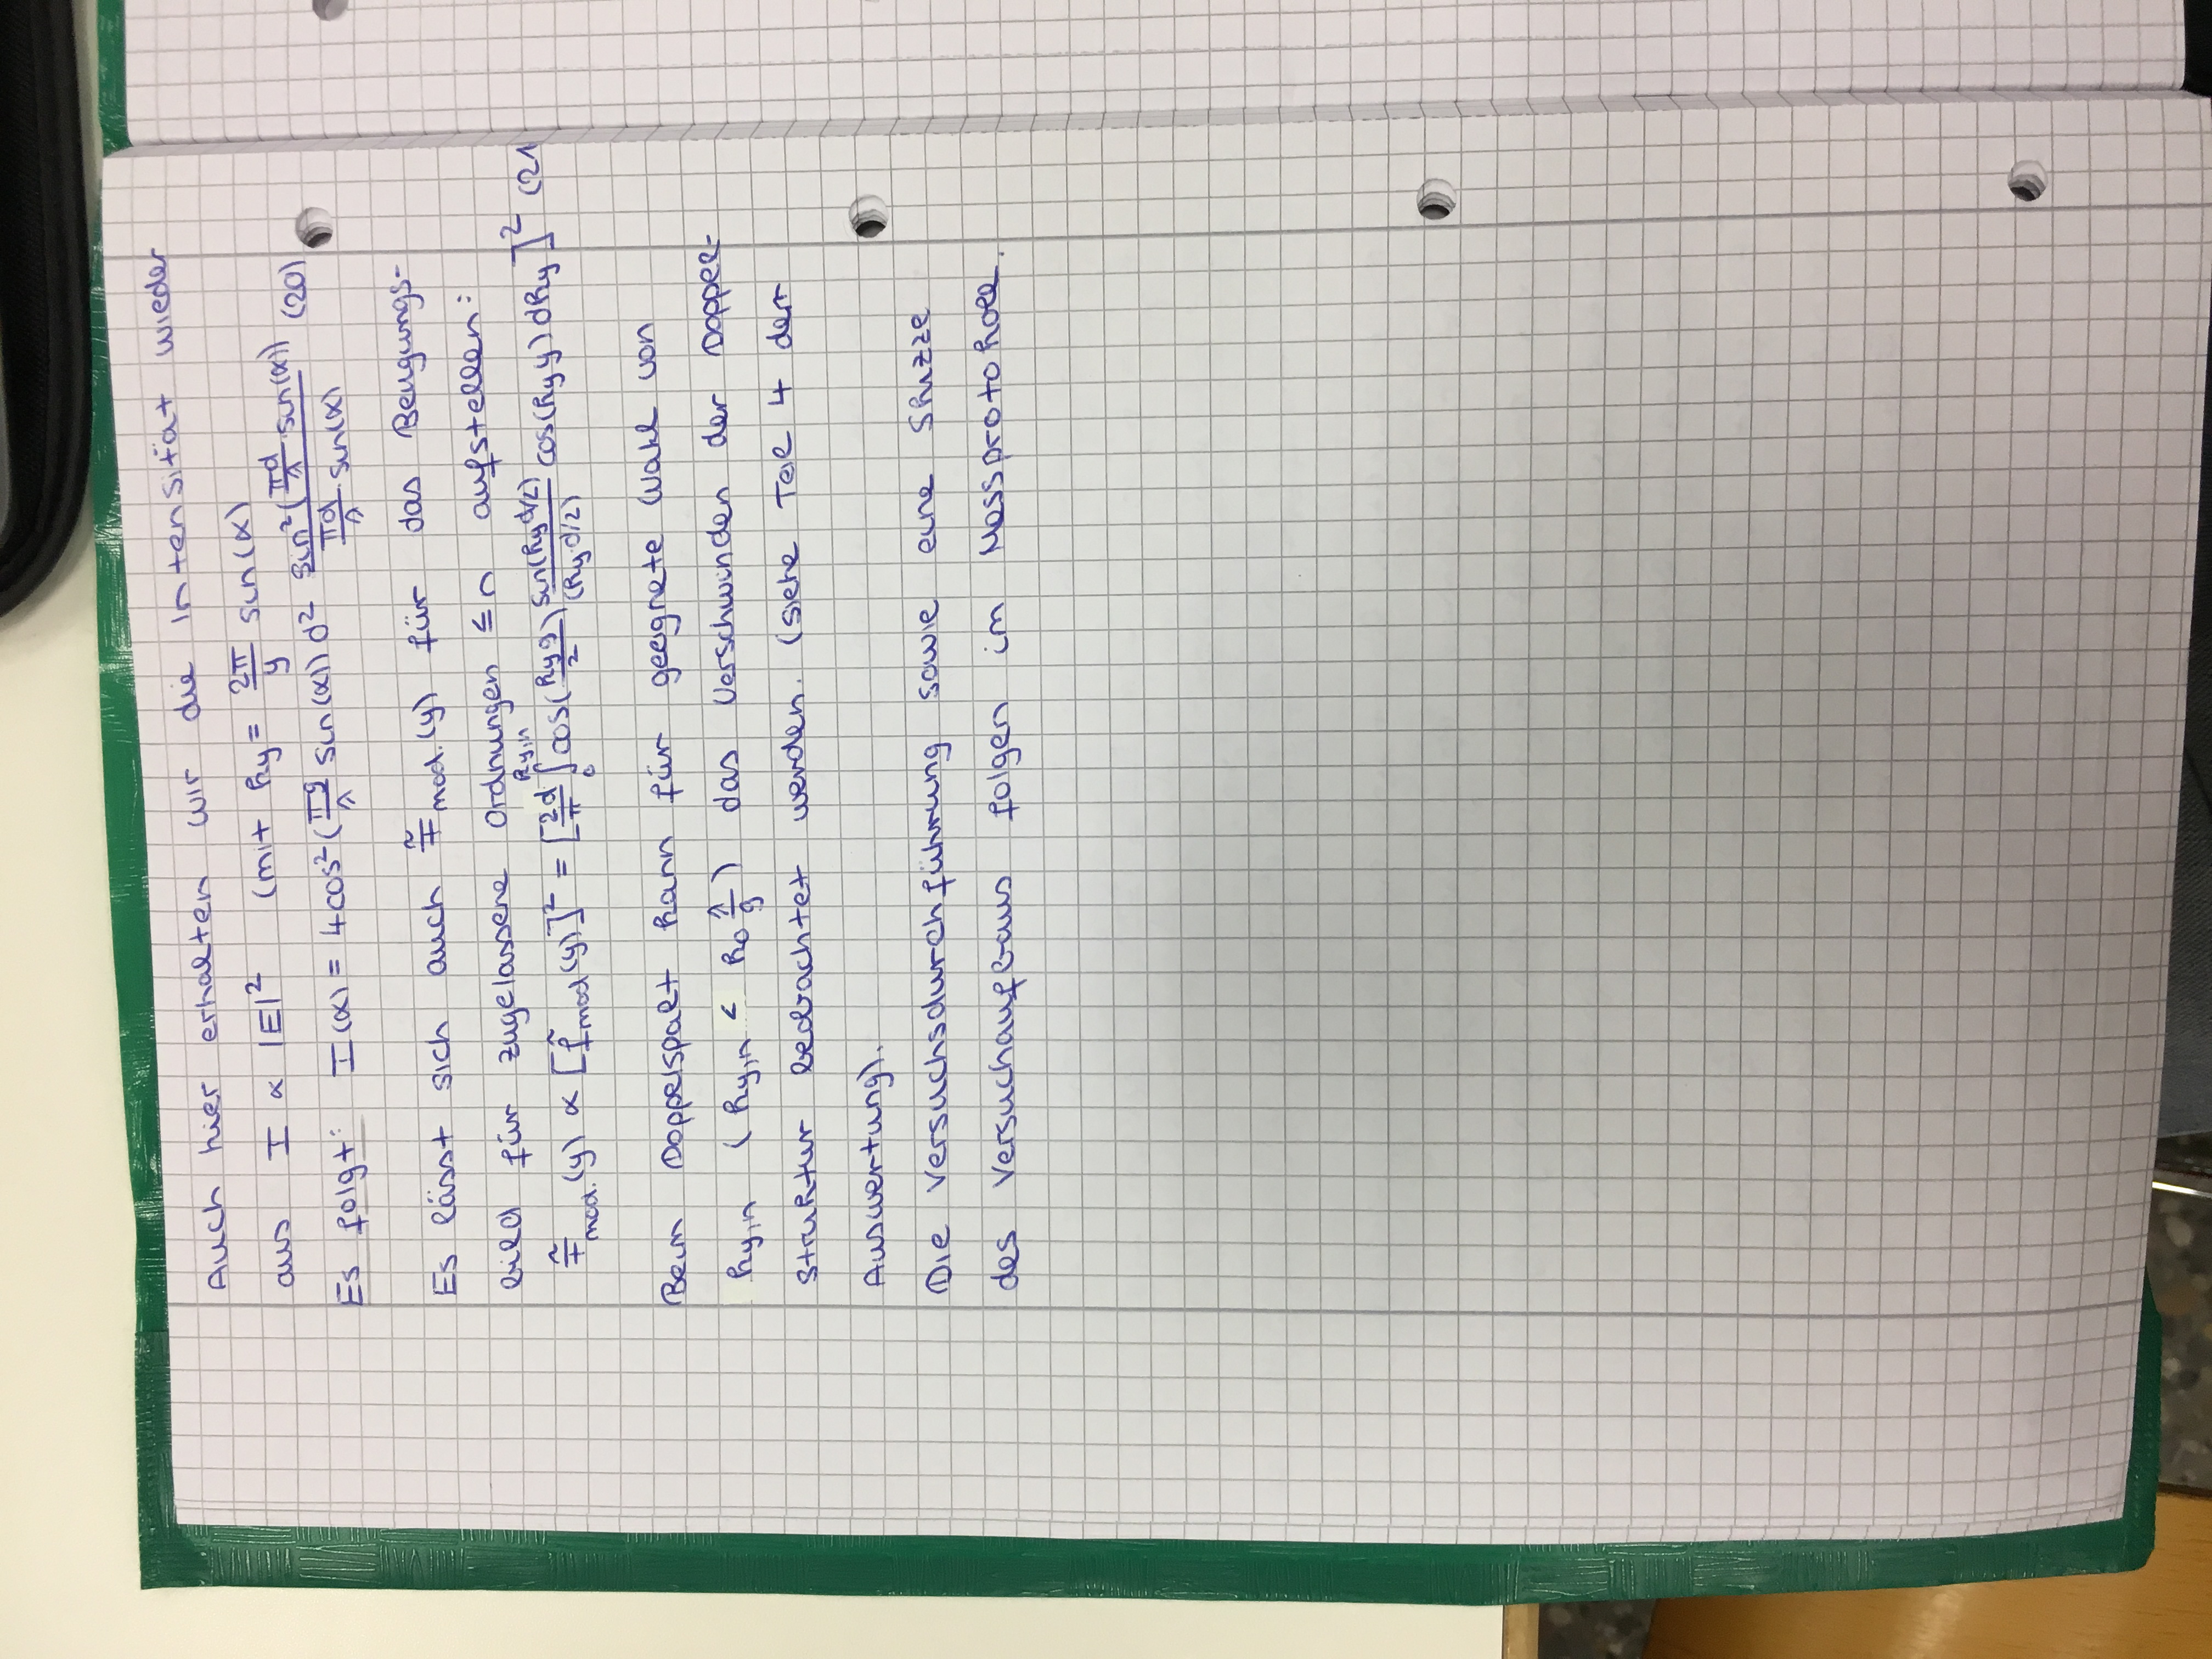 Auch hier erhalten wir die Intensität wieder
aus I ∝ |E|² (mit ky = 2π/y sin(α)
Es folgt: I(α) = 4cos²(πg/λ sin(α)) d² sin²(πd/λ · sin(α)) / (πd/λ · sin(α)) (20)
Es lässt sich auch Ĩ̂mod.(y) für das Beugungs-
bild für zugelassene Ordnungen ≤ n aufstellen:
Ĩ̂mod.(y) ∝ [f̃mod(y)]² = [2d/π ∫₀^ky,n cos(ky g/2) sin(ky d/2)/(ky·d/2) cos(ky y) dky]² (21
Beim Doppelspalt kann für geegnete Wahl von
ky,n (ky,n < k₀ λ/g) das Verschwinden der Doppel-
struktur beobachtet werden. (siehe Teil 4 der
Auswertung).
Die Versuchsdurchführung sowie eine Skizze
des Versuchaufbaus folgen im Messprotokoll.